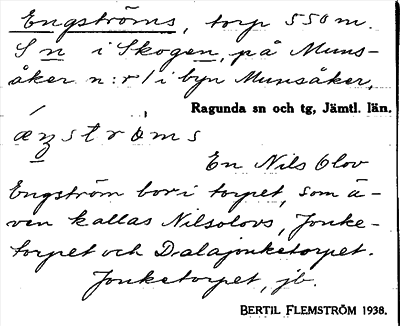 Engströms, torp 550 m.
S n i Skogen, på Muns-
åker n:r 1 i byn Munsåker,
Ragunda sn och tg, Jämtl. län.
æŋströms
En Nils Olov
Engström bor i torpet, som ä-
ven kallas Nilsolovs, Jonke-
torpet och Dalajonketorpet.
Jonketorpet, jb.
BERTIL FLEMSTRÖM 1938.